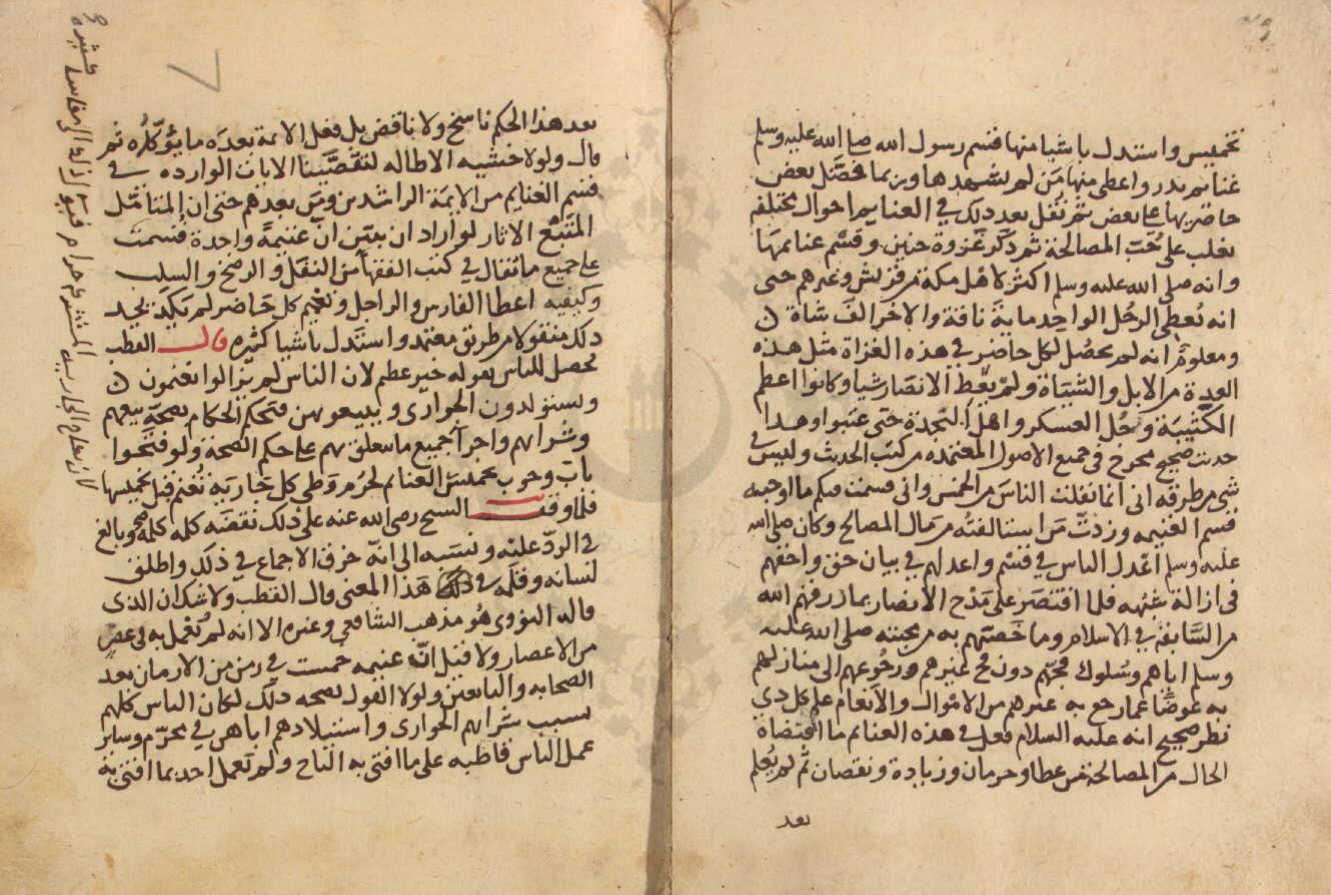 تخميس واستدل باشيا منها قسم رسول الله صلى الله عليه وسلم
غنائم بدر واعطى منها من لم يشهدها وربما فضل بعض
حاضريها على بعض ثم نقل بعد ذلك في الغنايم احوال مختلفه
يغلب على المصالحة ثم ذكر غزوة حنين وقسم غنائمها
وانه صلى الله عليه وسلم اكثر لاهل مكة من قريش وغيرهم حتى
انه يُعطى الرجُل الواحد ماية ناقة والاخر الف شاة
ومعلوم انه لم يحصُل لكل حاضر في هذه الغزاة مثل هذه
العدة من الابل والشياة ولم يعط الانصار شيا وكانوا اعظم
الكتيبة وجُل العسكر واهل النجدة حتى عتبوا وهذا
حديث صحيح مخرج في جميع الاصول المعتمده من كتب الحديث وليس في
شى من طرقه انى انما نفلت الناس من الخمس وانى قسمت فيكم ما اوجبه
قسم الغنيمه وزدت من استالفته من مال المصالح وكان صلى الله
عليه وسلم اعدل الناس في قسم واعدلهم في بيان حق واحقهم
فى ازالة شبهه فلما اقتصر على مدح الانصار بما رزقهم الله
من السابقة في الاسلام وما خصّهم به من محبته صلى الله عليه
وسلم اياهم وسلوك فجهم دون فج غيرهم ورجوعهم الى منازلهم
به عوضًا عما رجع به غيرهم من الاموال والانعام علم كل ذي
نظر صحيح انه عليه السلام فعل في هذه الغنائم ما اقتضاه
الحال من المصالحة من عطا وحرمان وزيادة ونقصان ثم لم يُعلم
بعد
7
بعد هذا الحكم ناسخ ولا ناقض بل فعل الايمة بعده ما يؤكده ثم
قال ولولا خشيه الاطاله لتقصّينا الايات الوارده في
قسم الغنايم من الايمة الراشدين ومن بعدهم حتى ان المتامل
المتبع الاثار لو اراد ان يبيّن انّ غنيمةً واحدة قسمت
على جميع ما يقال في كتب الفقهآ من النفل والرضخ والسلب
وكيفيه اعطا الفارس والراجل وتعميم كل حاضر لم يكد يجد
ذلك منقولا من طريق معتمد واستدل باشيا كثيره قال القطب
يحصل للناس بقوله خير عظيم لان الناس لم يزالوا يغنمون
ويستولدون الجوارى ويبيعونهن فتحكم الحكام بصحة بيعهم
وشرائهم واجرآ جميع ما يتعلق بهم على حكم الصحة ولو فتحوا
باب وجوب تخميس الغنائم لحرم وطى كل جارية تُغنم قبل تخميسها
فلما وقف الشيخ رضى الله عنه على ذلك نقضه كله كلمة كلمة وبالغ
في الردّ عليه ونسبه الى انه خرق الاجماع في ذلك واطلق
لسانه وقلمه في هذا المعنى قال القطب ولا شك ان الذى
قاله النووى هُو مذهب الشافعي وغيره الا انه لم يُعمل به في عصر
من الاعصار ولا قيل انّ غنيمه خمست في زمن من الازمان بعد
الصحابه والتابعين ولولا القول بصحه ذلك لكان الناس كلهم
بسبب شرائهم الجوارى واستيلادهم اياهن في محرّم وساير
عمل الناس قاطبه على ما افتى به التاج ولم يعمل احد بما افتى به